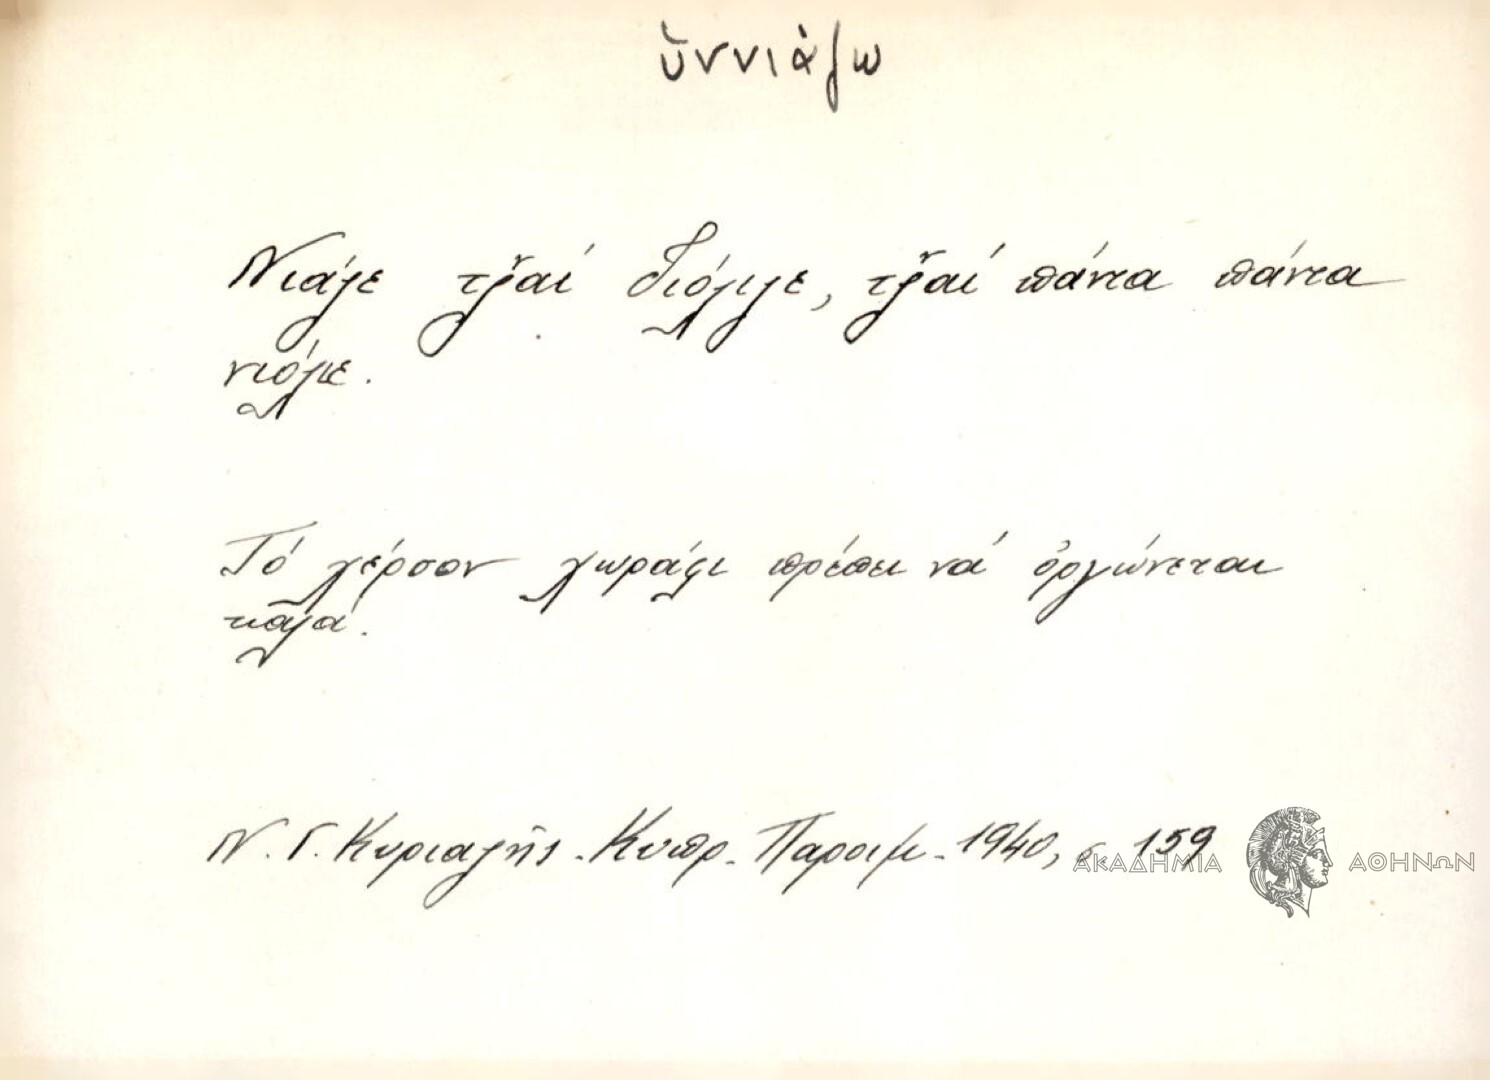 ὑννιάζω
Νιάζε τζ̌αί διόλιζε, τζ̌αί πάντα πάντα
νιόλιε.
Τό χέρσον χωράφι πρέπει νά ὀργώνεται
καλά.
Ν. Γ. Κυριαζῆς. Κυπρ. Παροιμ. 1940, σ. 159
ΑΚΑΔΗΜΙΑ ΑΘΗΝΩΝ